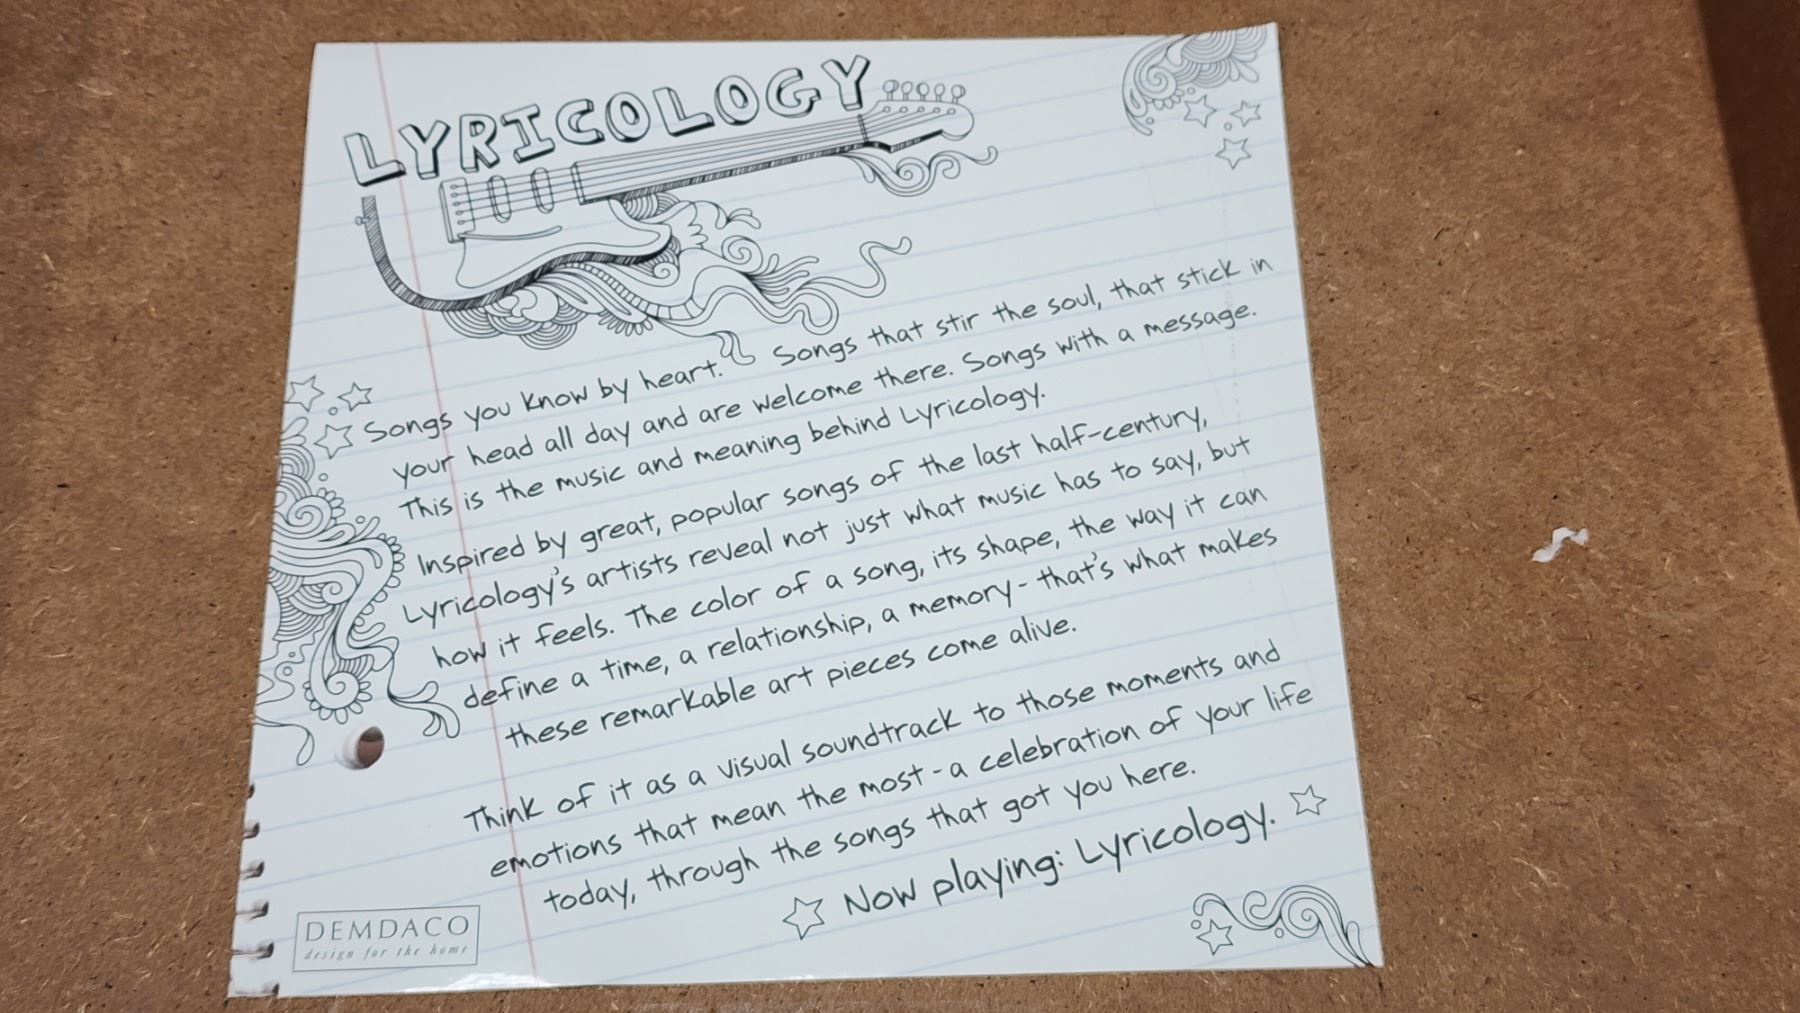 LYRICOLOGY
Songs you know by heart. Songs that stir the soul, that stick in
your head all day and are welcome there. Songs with a message.
This is the music and meaning behind Lyricology.
Inspired by great, popular songs of the last half-century,
Lyricology's artists reveal not just what music has to say, but
how it feels. The color of a song, its shape, the way it can
define a time, a relationship, a memory - that's what makes
these remarkable art pieces come alive.
Think of it as a visual soundtrack to those moments and
emotions that mean the most - a celebration of your life
today, through the songs that got you here.
Now playing: Lyricology.
DEMDACO
design for the home